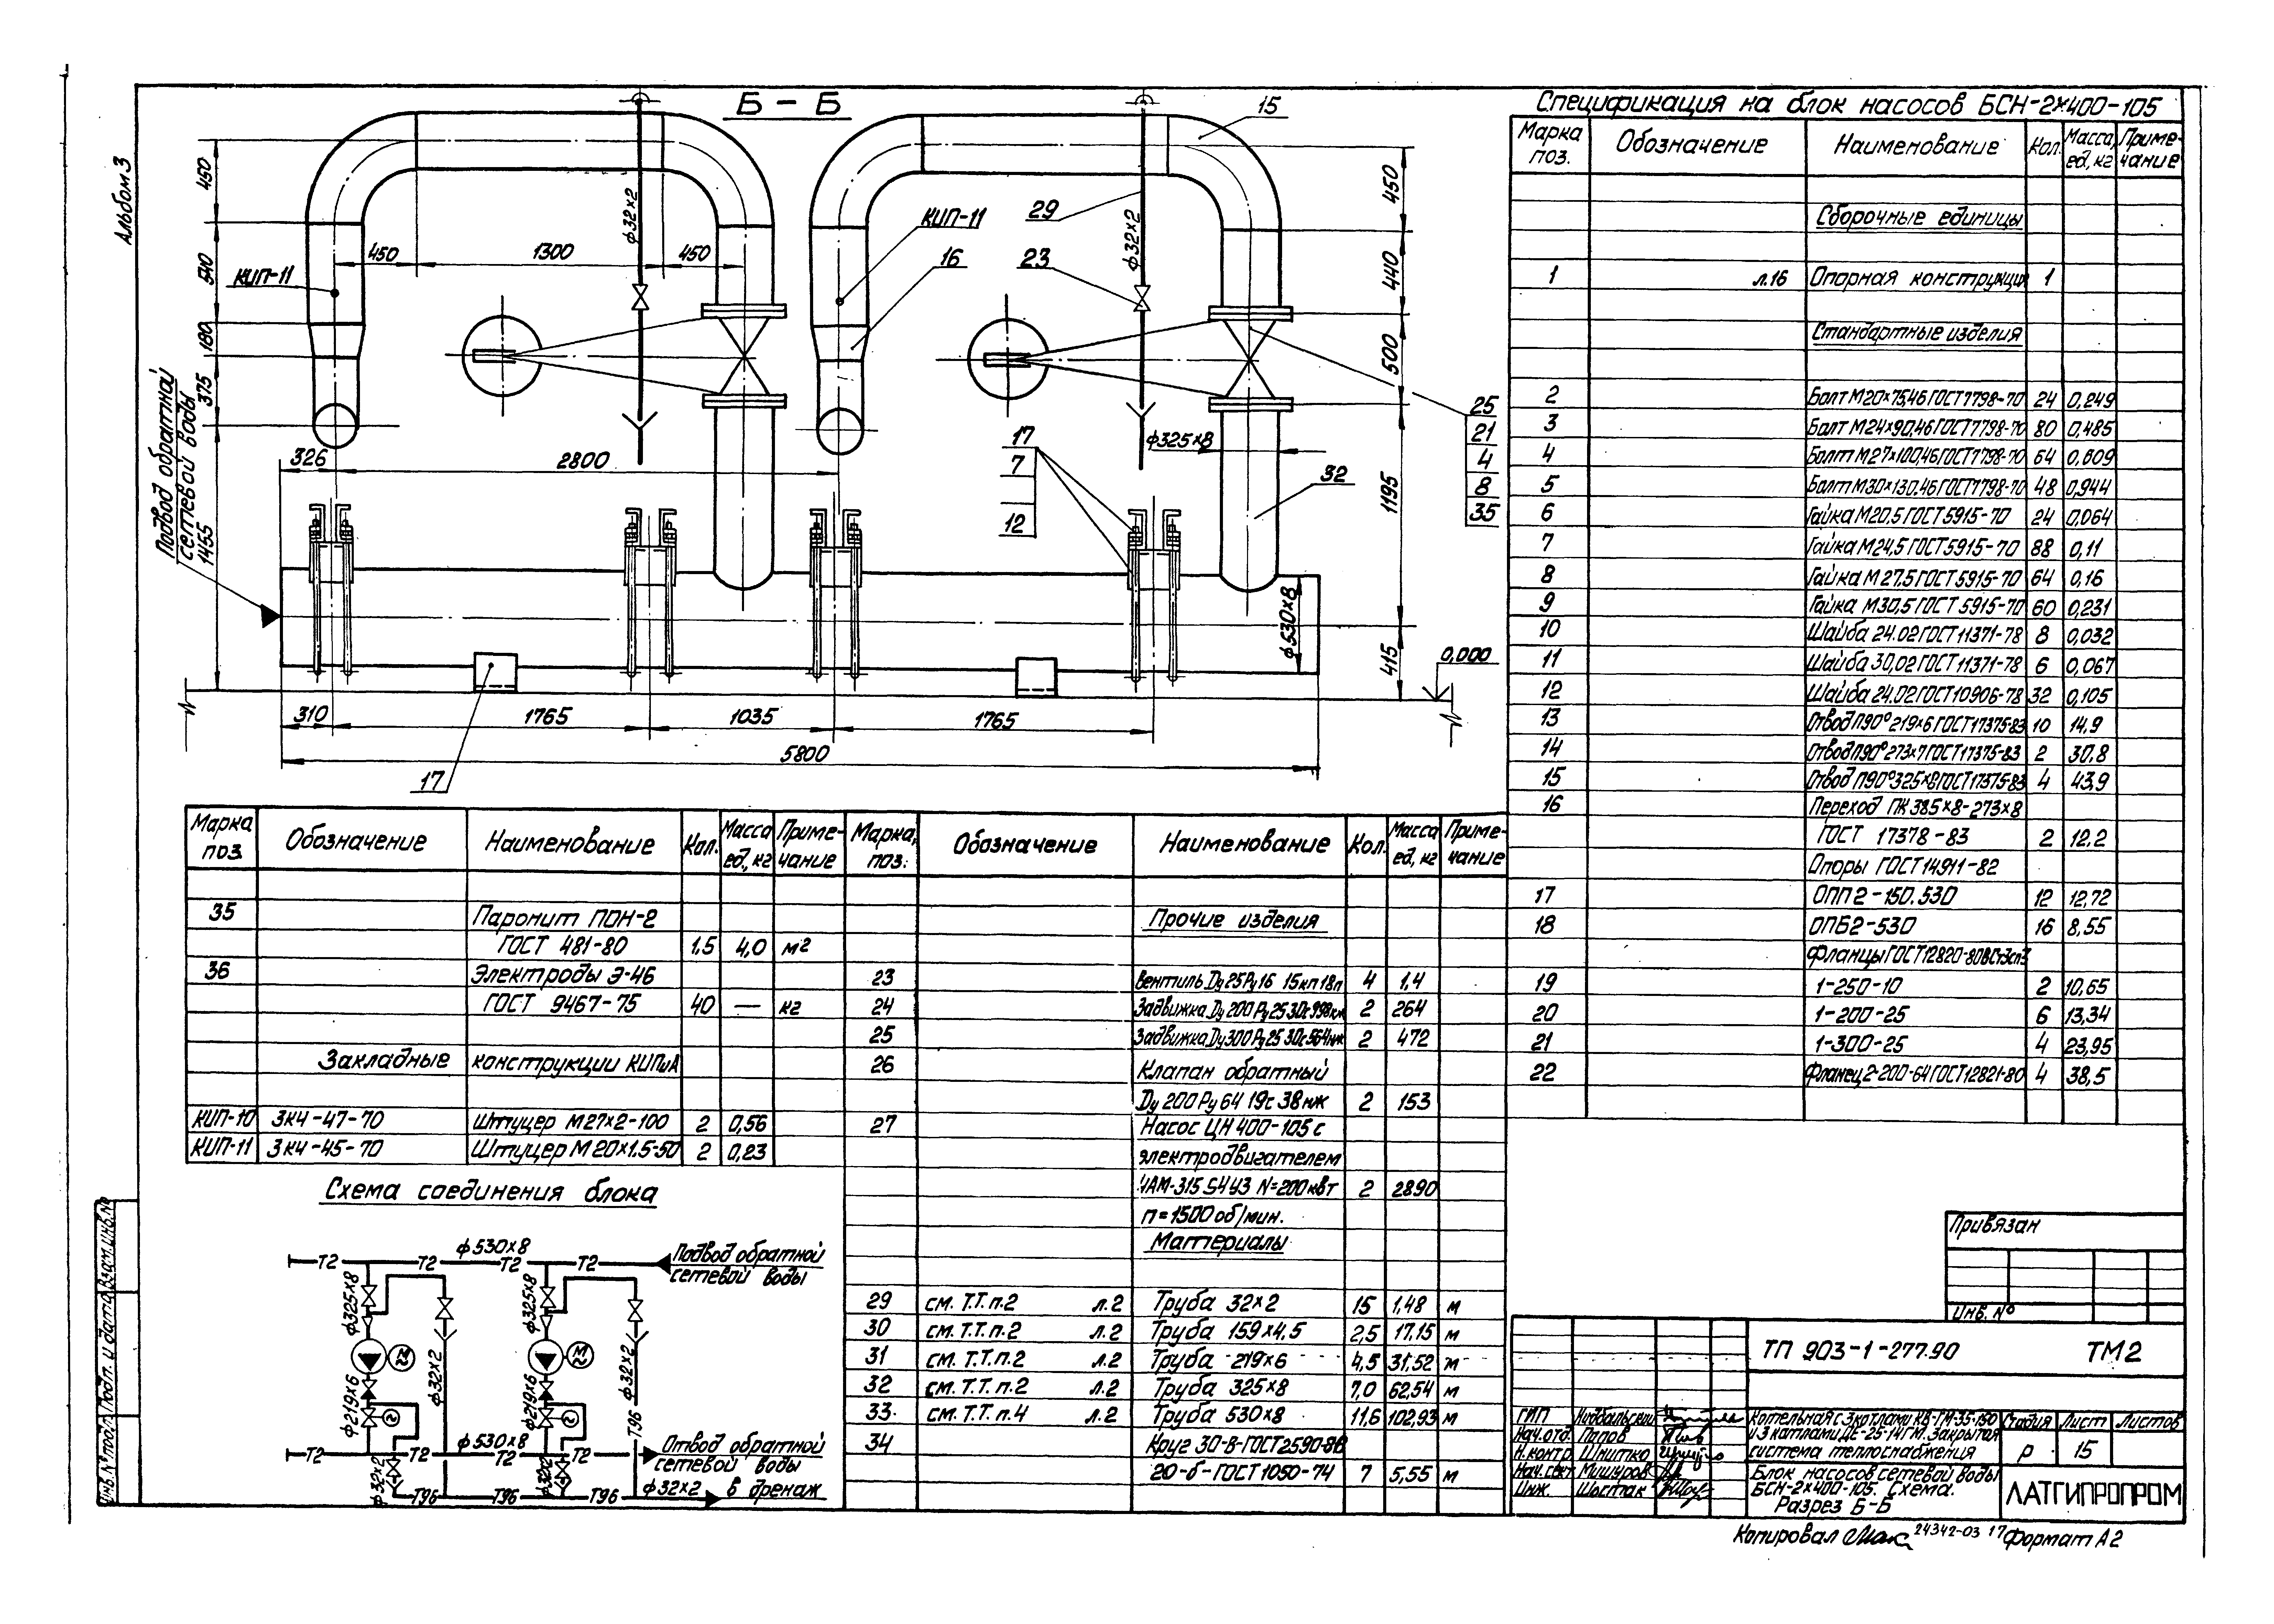 Альбом 3
Б – Б
15
450
540
180
375
1455
450
1300
450
КИП-11
ф32×2
КИП-11
16
29
23
ф32×2
450
440
500
1195
415
25
21
4
8
35
ф325×8
32
17
7
12
326
2800
Подвод обратной
сетевой воды
ф530×8
0,000
310
1765
1035
1765
5800
17
Спецификация на блок насосов БСН-2×400-105
Марка поз. Обозначение Наименование Кол. Масса, ед, кг Приме-чание
Сборочные единицы
1 л.16 Опорная конструкция 1
Стандартные изделия
2 Болт М20×75,46 ГОСТ7798-70 24 0,249
3 Болт М24×90,46 ГОСТ7798-70 80 0,485
4 Болт М27×100,46 ГОСТ7798-70 64 0,609
5 Болт М30×130.46 ГОСТ7798-70 48 0,944
6 Гайка М20.5 ГОСТ5915-70 24 0,064
7 Гайка М24,5 ГОСТ5915-70 88 0,11
8 Гайка М27.5 ГОСТ5915-70 64 0,16
9 Гайка М30,5 ГОСТ5915-70 60 0,231
10 Шайба 24.02 ГОСТ11371-78 8 0,032
11 Шайба 30,02 ГОСТ11371-78 6 0,067
12 Шайба 24.02 ГОСТ10906-78 32 0,105
13 Отвод П90° 219×6 ГОСТ17375-83 10 14,9
14 Отвод П90° 273×7 ГОСТ17375-83 2 30,8
15 Отвод П90° 325×8 ГОСТ17375-83 4 43,9
16 Переход ПК 385×8-273×8
ГОСТ 17378-83 2 12,2
Опоры ГОСТ14911-82
17 ОПП2-150.530 12 12,72
18 ОПБ2-530 16 8,55
Фланцы ГОСТ12820-80 ВСт3сп3
19 1-250-10 2 10,65
20 1-200-25 6 13,34
21 1-300-25 4 23,95
22 Фланец 2-200-64 ГОСТ12821-80 4 38,5
Марка поз. Обозначение Наименование Кол. Масса ед, кг Приме-чание
35 Паронит ПОН-2
ГОСТ 481-80 1.5 4,0 м2
36 Электроды Э-46
ГОСТ 9467-75 40 — кг
Закладные конструкции КИПиА
КИП-10 ЗКЧ-47-70 Штуцер М27×2-100 2 0,56
КИП-11 ЗКЧ-45-70 Штуцер М20×1.5-50 2 0,23
Марка, поз. Обозначение Наименование Кол. Масса ед, кг Приме-чание
Прочие изделия
23 Вентиль Ду25 Ру16 15кп18п 4 1,4
24 Задвижка Ду200 Ру25 30с998нж 2 264
25 Задвижка Ду300 Ру25 30с564нж 2 472
26 Клапан обратный
Ду200 Ру64 19с38нж 2 153
27 Насос ЦН400-105 с
электродвигателем
4АМ-315S4У3 N=200квт 2 2890
п=1500об/мин.
Материалы
29 см. Т.Т. п.2 л.2 Труба 32×2 15 1,48 м
30 см. Т.Т. п.2 л.2 Труба 159×4,5 2,5 17,15 м
31 см. Т.Т. п.2 л.2 Труба 219×6 4,5 31,52 м
32 см. Т.Т. п.2 л.2 Труба 325×8 7,0 62,54 м
33 см. Т.Т. п.4 л.2 Труба 530×8 11,6 102,93 м
34 Круг 30-В-ГОСТ2590-88
20-б-ГОСТ1050-74 7 5,55 м
Схема соединения блока
Т2 Т2 ф530×8 Т2 Т2
Подвод обратной
сетевой воды
ф325×8
ф325×8
М
М
ф219×6
ф32×2
ф219×6
ф32×2
Т96
Т2 Т2 ф530×8 Т2 Т2
Отвод обратной
сетевой воды
ф32×2
ф32×2
Т96 Т96 Т96 ф32×2 в дренаж
Инв.№подл. Подп. и дата Взам.инв.№
Привязан
Инв. №
ТП 903-1-277.90 ТМ2
ГИП
Нач.отд. Попов
Н.контр. Шнитко
Нач.сект. Мишуров
Инж. Шостак
Котельная с 3 котлами КВ-ГМ-35-150
и 3 котлами ДЕ-25-14ГМ. Закрытая
система теплоснабжения
Стадия Лист Листов
р 15
Блок насосов сетевой воды
БСН-2×400-105. Схема.
Разрез Б-Б
ЛАТГИПРОПРОМ
Копировал 24342-03 17 Формат А2